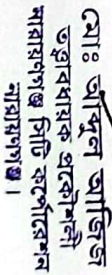 মোঃ আবুল আজিজ
তত্ত্বাবধায়ক প্রকৌশলী
নারায়ণগঞ্জ সিটি কর্পোরেশন
নারায়ণগঞ্জ।